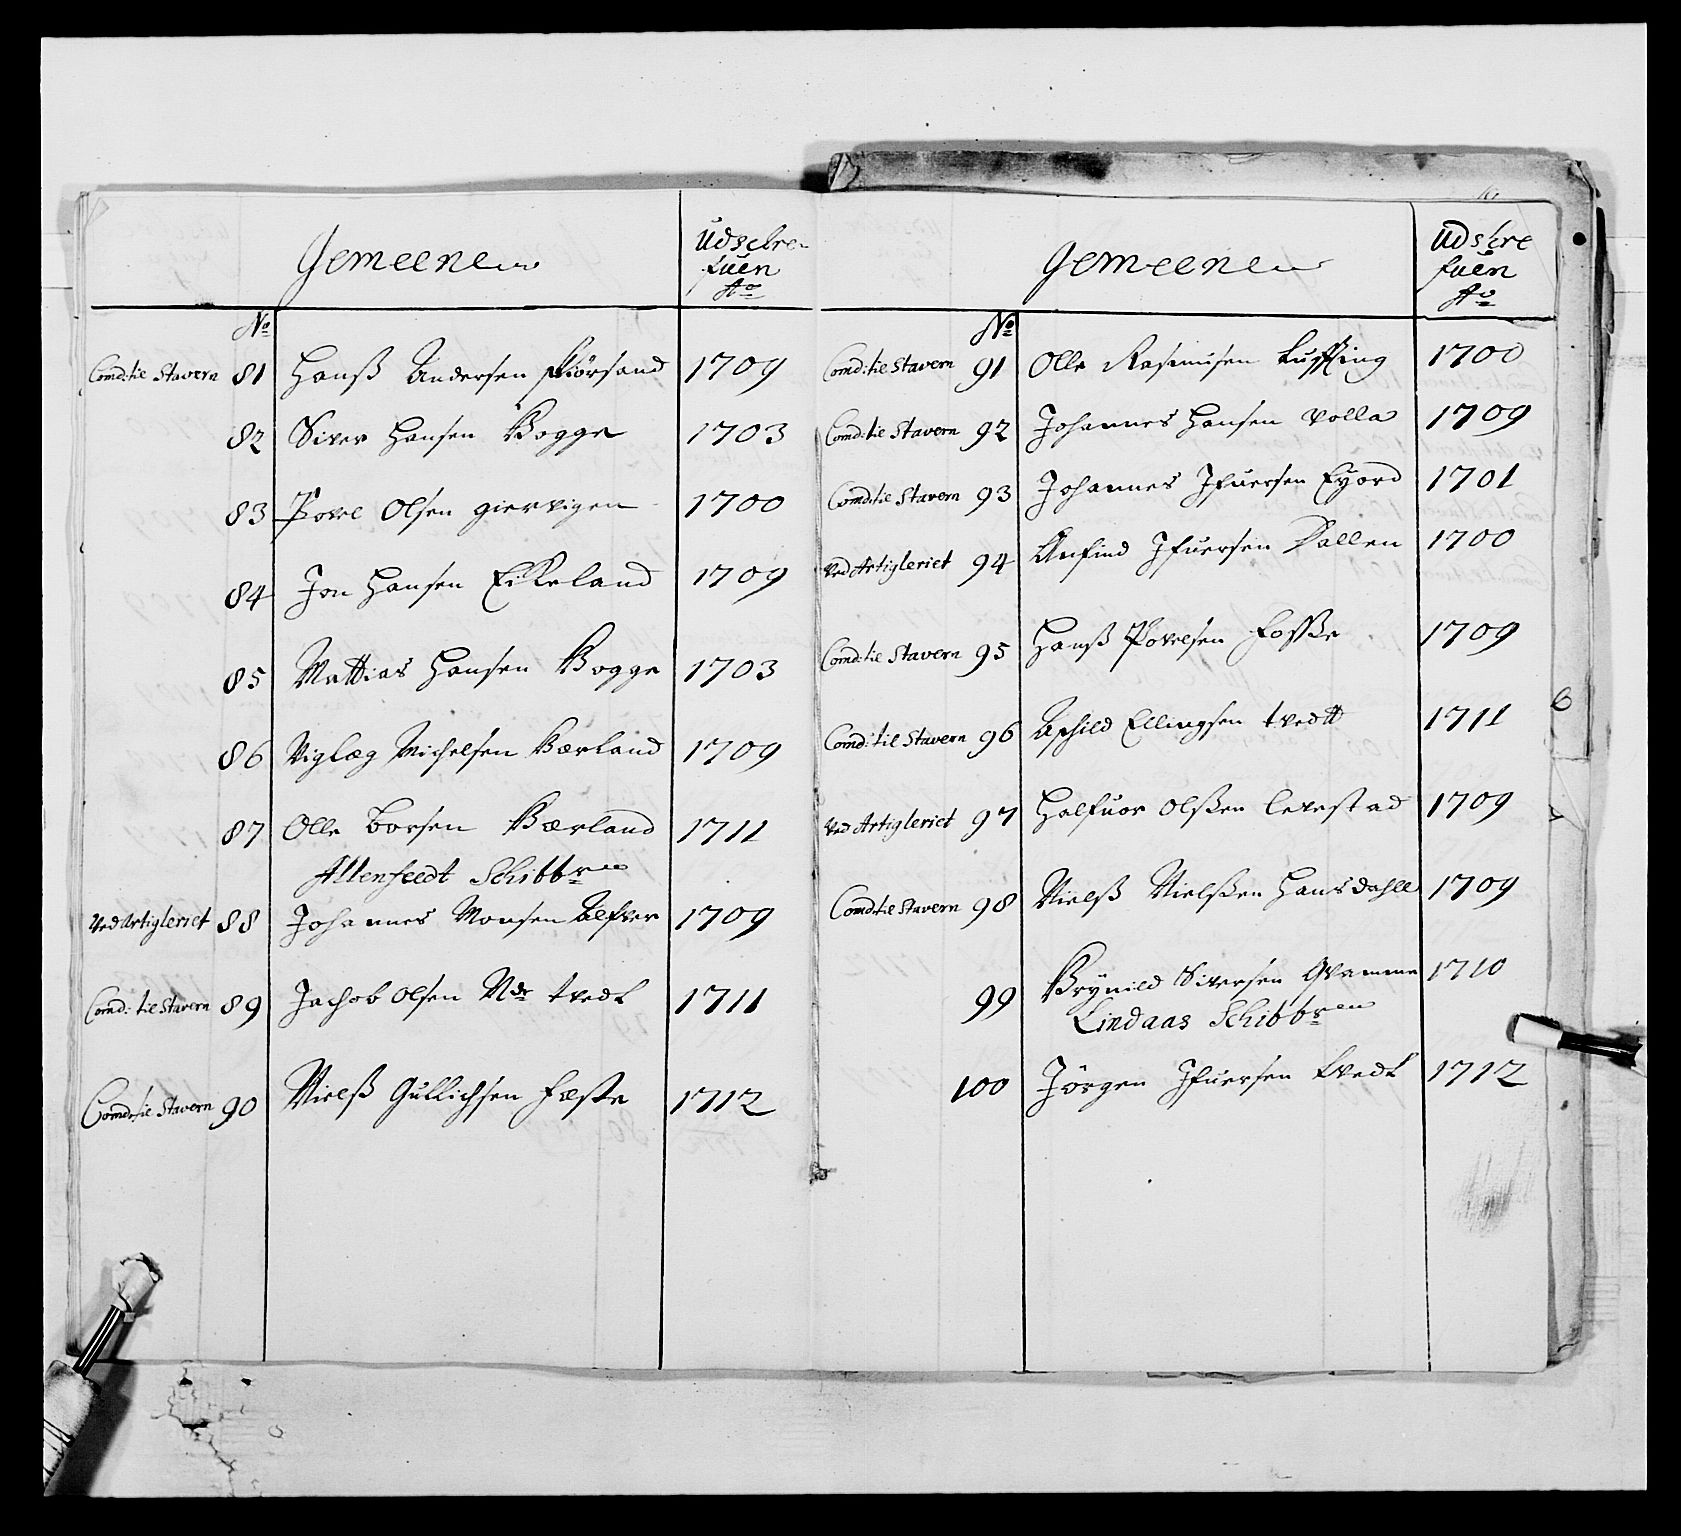 Gemeene
Udschre
fuen
Ao
No
Comd: til Stavern 81 Hanß Andersen Kiörsand 1709
82 Siver Hansen Bogge 1703
83 Povel Olsen giervigen 1700
84 Jon Hansen Eikeland 1709
85 Mattias Hansen Bogge 1703
86 Viglæg Michelsen Bærland 1709
87 Olle Borsen Bærland 1711
Allenfeedt Schibbr
Ved Artigleriet 88 Johannes Monsen Alfver 1709
Comd: til Stavern 89 Jachob Olsen Ndr tvedt 1711
Comd: til Stavern 90 Nielß Gullichsen Fæste 1712
Gemeene
Udskre
fuen
Ao
No
Comd: til Stavern 91 Olle Rasmusen 1700
Comd: til Stavern 92 Johannes Hansen volla 1709
Comd: til Stavern 93 Johannes Ifuersen Eyord 1701
Ved Artigleriet 94 Anfind Ifuersen Dallen 1700
Comd: til Stavern 95 Hanß Povelsen Foßse 1709
Comd: til Stavern 96 Ellingsen tvedtt 1711
Ved Artigleriet 97 Halfuor Olßen levestad 1709
Comd: til Stavern 98 Nielß Nielßen Hansdahll 1709
99 Brynild Siversen Qvamme 1710
Lindaas Schibbren
100 Jörgen Ifuersen tvedt 1712